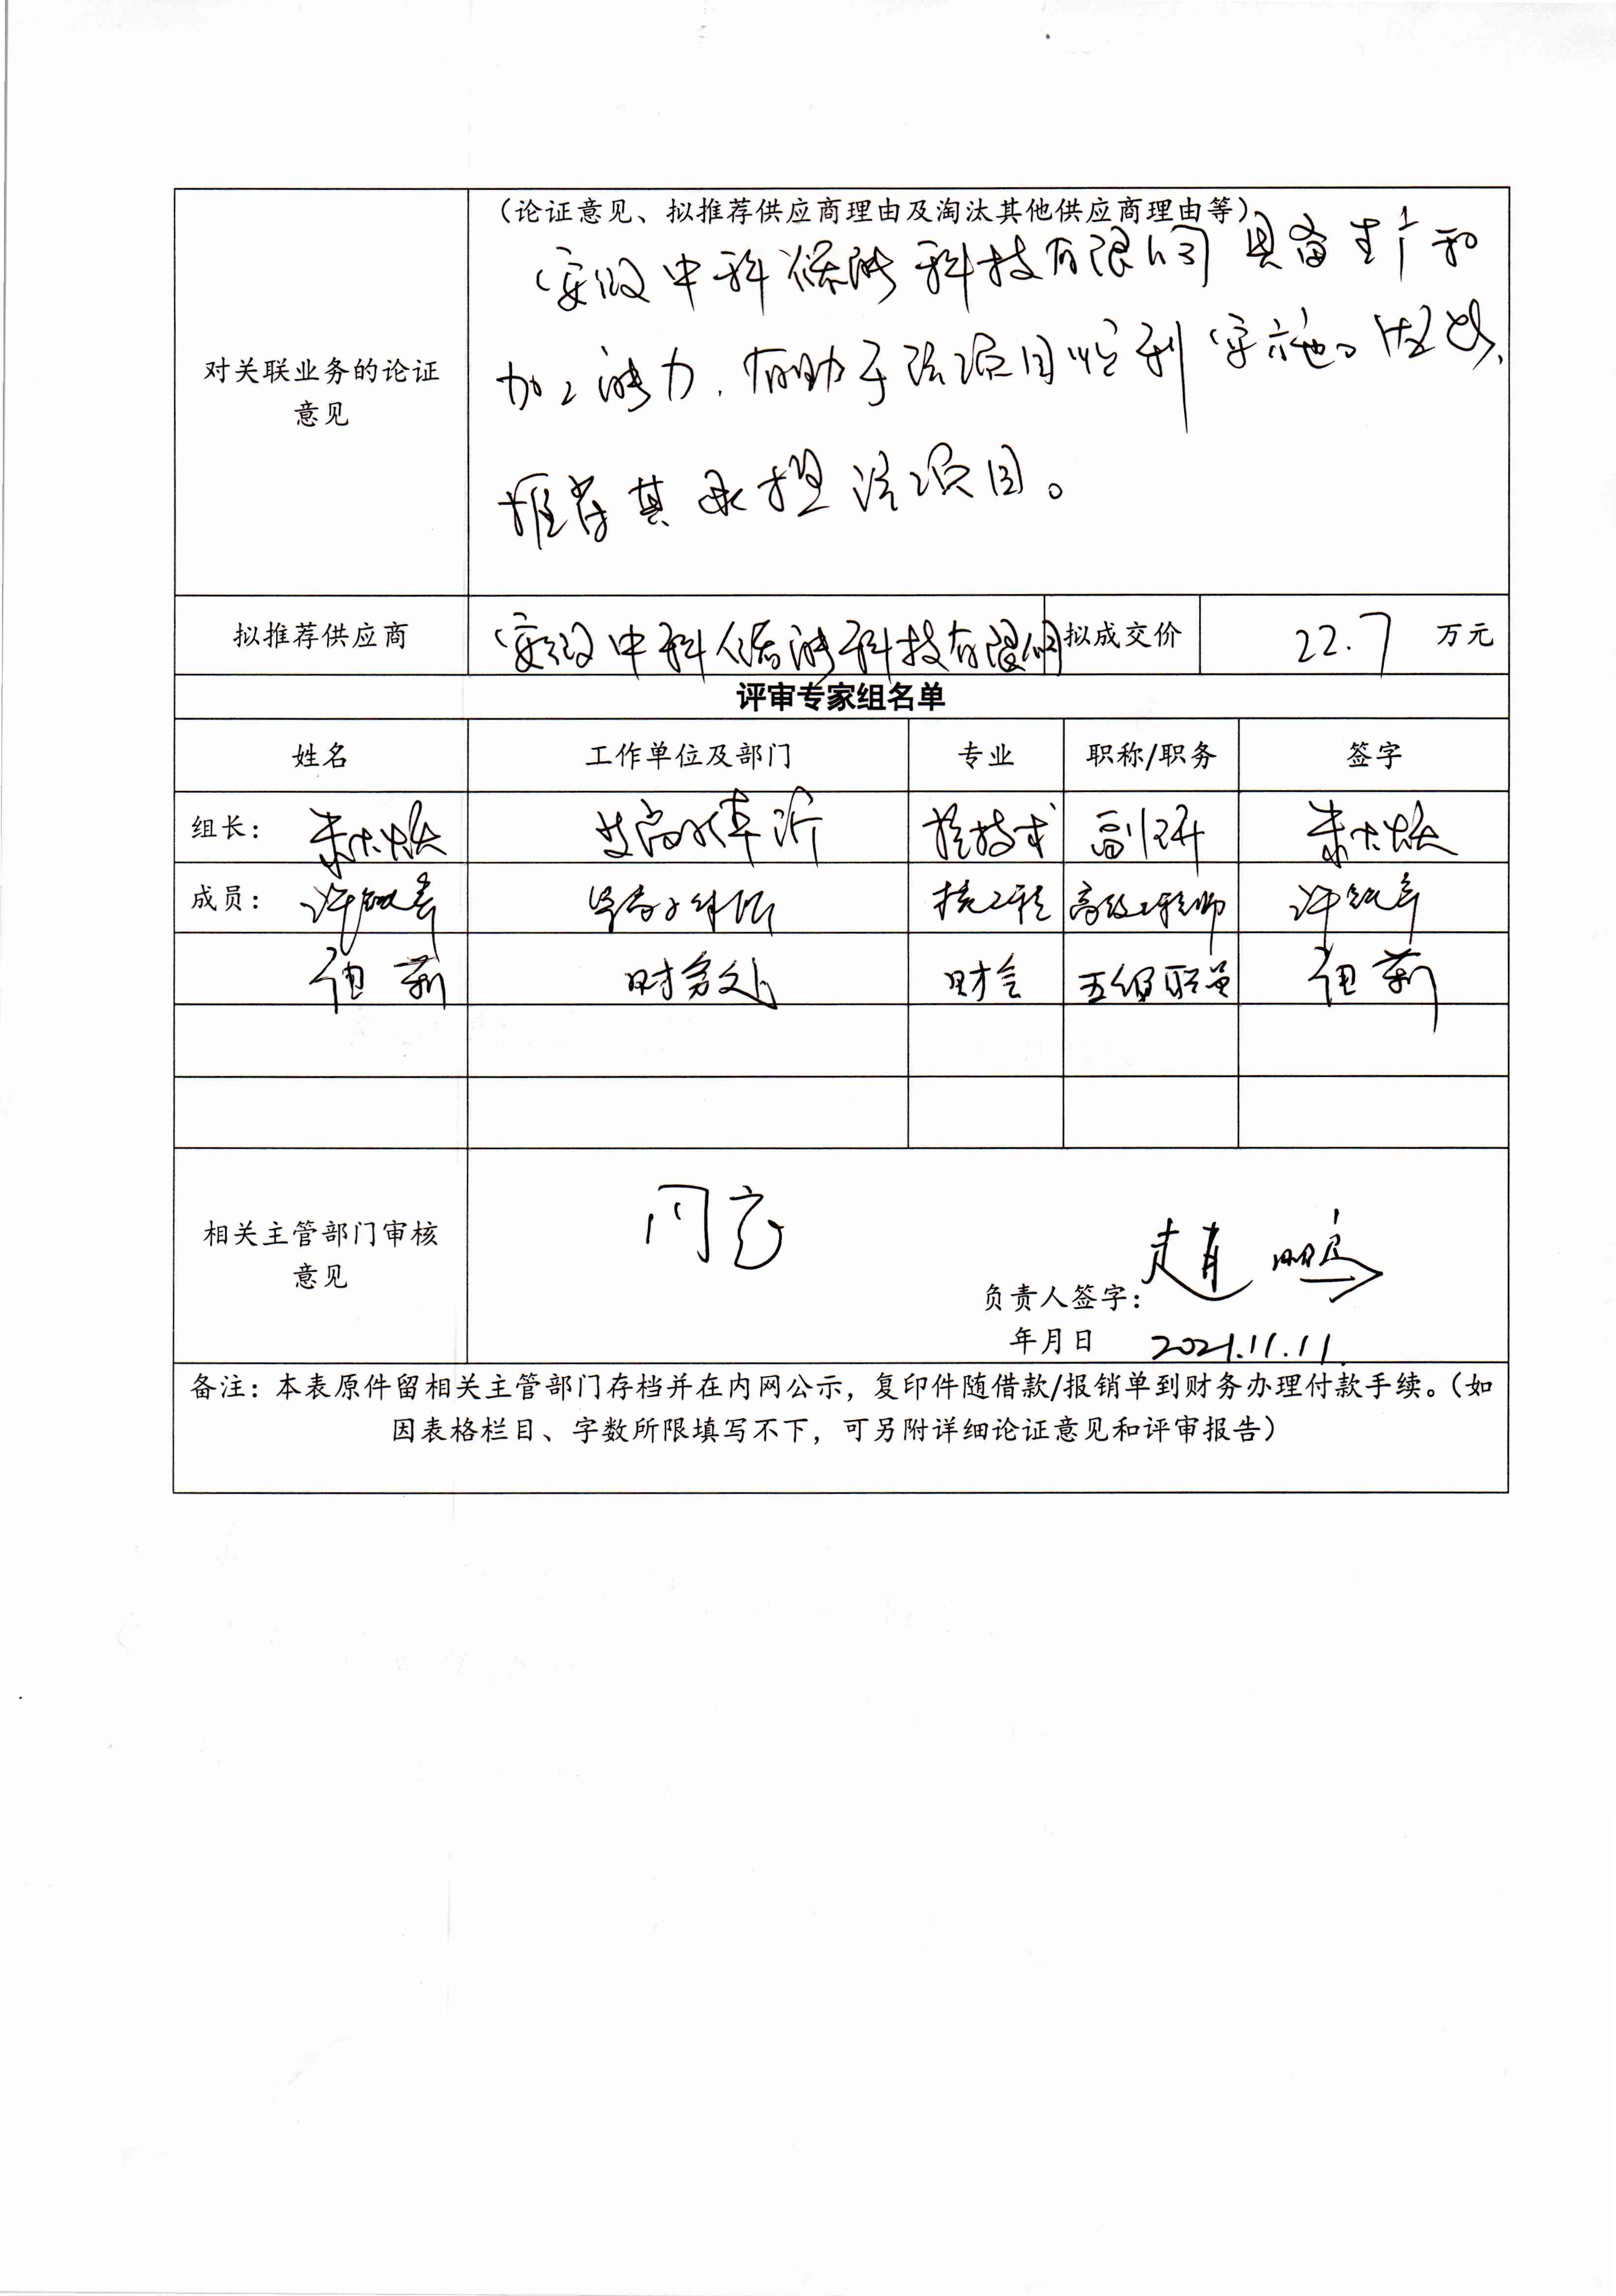 （论证意见、拟推荐供应商理由及淘汰其他供应商理由等）
安徽中科 科技有限公司具备生产和
对关联业务的论证意见
加工能力，有助于该项目顺利实施。因此，
推荐其承担该项目。
拟推荐供应商 安徽中科 科技有限公司 拟成交价 22.7 万元
评审专家组名单
姓名 工作单位及部门 专业 职称/职务 签字
组长： 核技术 副研
成员： 许 核工程 高级工程师 许
财务处 财会 五级职员
相关主管部门审核意见
同意
负责人签字： 赵鹏
年月日 2021.11.11.
备注：本表原件留相关主管部门存档并在内网公示，复印件随借款/报销单到财务办理付款手续。（如
因表格栏目、字数所限填写不下，可另附详细论证意见和评审报告）